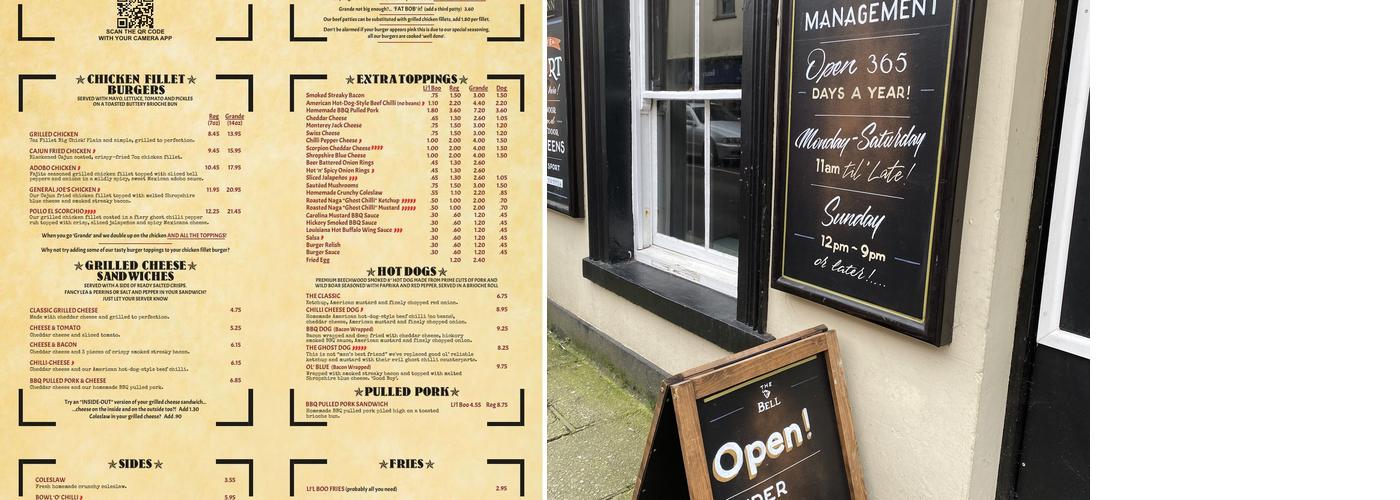 SCAN THE QR CODE
WITH YOUR CAMERA APP
Grande not big enough?... 'FAT BOB' it! (add a third patty) 3.60
Our beef patties can be substituted with grilled chicken fillets, add 1.80 per fillet.
Don't be alarmed if your burger appears pink this is due to our special seasoning,
all our burgers are cooked 'well done'.
CHICKEN FILLET
BURGERS
SERVED WITH MAYO, LETTUCE, TOMATO AND PICKLES
ON A TOASTED BUTTERY BRIOCHE BUN
Reg Grande
(7oz) (14oz)
GRILLED CHICKEN 8.45 13.95
7oz Fillet Big Chick! Plain and simple, grilled to perfection.
CAJUN FRIED CHICKEN 9.45 15.95
Blackened Cajun coated, crispy-fried 7oz chicken fillet.
ADOBO CHICKEN 10.45 17.95
Fajita seasoned grilled chicken fillet topped with sliced bell
peppers and onions in a mildly spicy, sweet Mexican adobo sauce.
GENERAL JOE'S CHICKEN 11.95 20.95
Our Cajun fried chicken fillet topped with melted Shropshire
blue cheese and smoked streaky bacon.
POLLO EL SCORCHIO 12.25 21.45
Our grilled chicken fillet coated in a fiery ghost chilli pepper
rub topped with crisp, sliced jalapeños and spicy Mexicana cheese.
When you go 'Grande' and we double up on the chicken AND ALL THE TOPPINGS!
Why not try adding some of our tasty burger toppings to your chicken fillet burger?
GRILLED CHEESE
SANDWICHES
SERVED WITH A SIDE OF READY SALTED CRISPS.
FANCY LEA & PERRINS OR SALT AND PEPPER IN YOUR SANDWICH?
JUST LET YOUR SERVER KNOW
CLASSIC GRILLED CHEESE 4.75
Made with cheddar cheese and grilled to perfection.
CHEESE & TOMATO 5.25
Cheddar cheese and sliced tomato.
CHEESE & BACON 6.15
Cheddar cheese and 3 pieces of crispy smoked streaky bacon.
CHILLI-CHEESE 6.15
Cheddar cheese and our American hot-dog-style beef chilli.
BBQ PULLED PORK & CHEESE 6.85
Cheddar cheese and our homemade BBQ pulled pork.
Try an "INSIDE-OUT" version of your grilled cheese sandwich...
...cheese on the inside and on the outside too?! Add 1.30
Coleslaw in your grilled cheese? Add .90
SIDES
COLESLAW 3.55
Fresh homemade crunchy coleslaw.
BOWL 'O' CHILLI 5.95
EXTRA TOPPINGS
Li'l Boo Reg Grande Dog
Smoked Streaky Bacon .75 1.50 3.00 1.50
American Hot-Dog-Style Beef Chilli (no beans) 1.10 2.20 4.40 2.20
Homemade BBQ Pulled Pork 1.80 3.60 7.20 3.60
Cheddar Cheese .65 1.30 2.60 1.05
Monterey Jack Cheese .75 1.50 3.00 1.20
Swiss Cheese .75 1.50 3.00 1.20
Chilli Pepper Cheese 1.00 2.00 4.00 1.50
Scorpion Cheddar Cheese 1.00 2.00 4.00 1.50
Shropshire Blue Cheese 1.00 2.00 4.00 1.50
Beer Battered Onion Rings .45 1.30 2.60
Hot 'n' Spicy Onion Rings .45 1.30 2.60
Sliced Jalapeños .65 1.30 2.60 1.05
Sautéed Mushrooms .75 1.50 3.00 1.50
Homemade Crunchy Coleslaw .55 1.10 2.20 .85
Roasted Naga "Ghost Chilli" Ketchup .50 1.00 2.00 .70
Roasted Naga "Ghost Chilli" Mustard .50 1.00 2.00 .70
Carolina Mustard BBQ Sauce .30 .60 1.20 .45
Hickory Smoked BBQ Sauce .30 .60 1.20 .45
Louisiana Hot Buffalo Wing Sauce .30 .60 1.20 .45
Salsa .30 .60 1.20 .45
Burger Relish .30 .60 1.20 .45
Burger Sauce .30 .60 1.20 .45
Fried Egg 1.20 2.40
HOT DOGS
PREMIUM BEECHWOOD SMOKED 8" HOT DOG MADE FROM PRIME CUTS OF PORK AND
WILD BOAR SEASONED WITH PAPRIKA AND RED PEPPER, SERVED IN A BRIOCHE ROLL
THE CLASSIC 6.75
Ketchup, American mustard and finely chopped red onion.
CHILLI CHEESE DOG 8.95
Homemade American hot-dog-style beef chilli (no beans),
cheddar cheese, American mustard and finely chopped onion.
BBQ DOG (Bacon Wrapped) 9.25
Bacon wrapped and deep fried with cheddar cheese, hickory
smoked BBQ sauce, American mustard and finely chopped onion.
THE GHOST DOG 8.25
This is not "man's best friend" we've replaced good ol' reliable
ketchup and mustard with their evil ghost chilli counterparts.
OL' BLUE (Bacon Wrapped) 9.75
Wrapped with smoked streaky bacon and topped with melted
Shropshire blue cheese. 'Good Boy'.
PULLED PORK
BBQ PULLED PORK SANDWICH Li'l Boo 4.55 Reg 8.75
Homemade BBQ pulled pork piled high on a toasted
brioche bun.
FRIES
LI'L BOO FRIES (probably all you need) 2.95
MANAGEMENT
Open 365
DAYS A YEAR!
Monday-Saturday
11am til' Late!
Sunday
12pm ~ 9pm
or later!.....
SPORT
THE
BELL
Open!